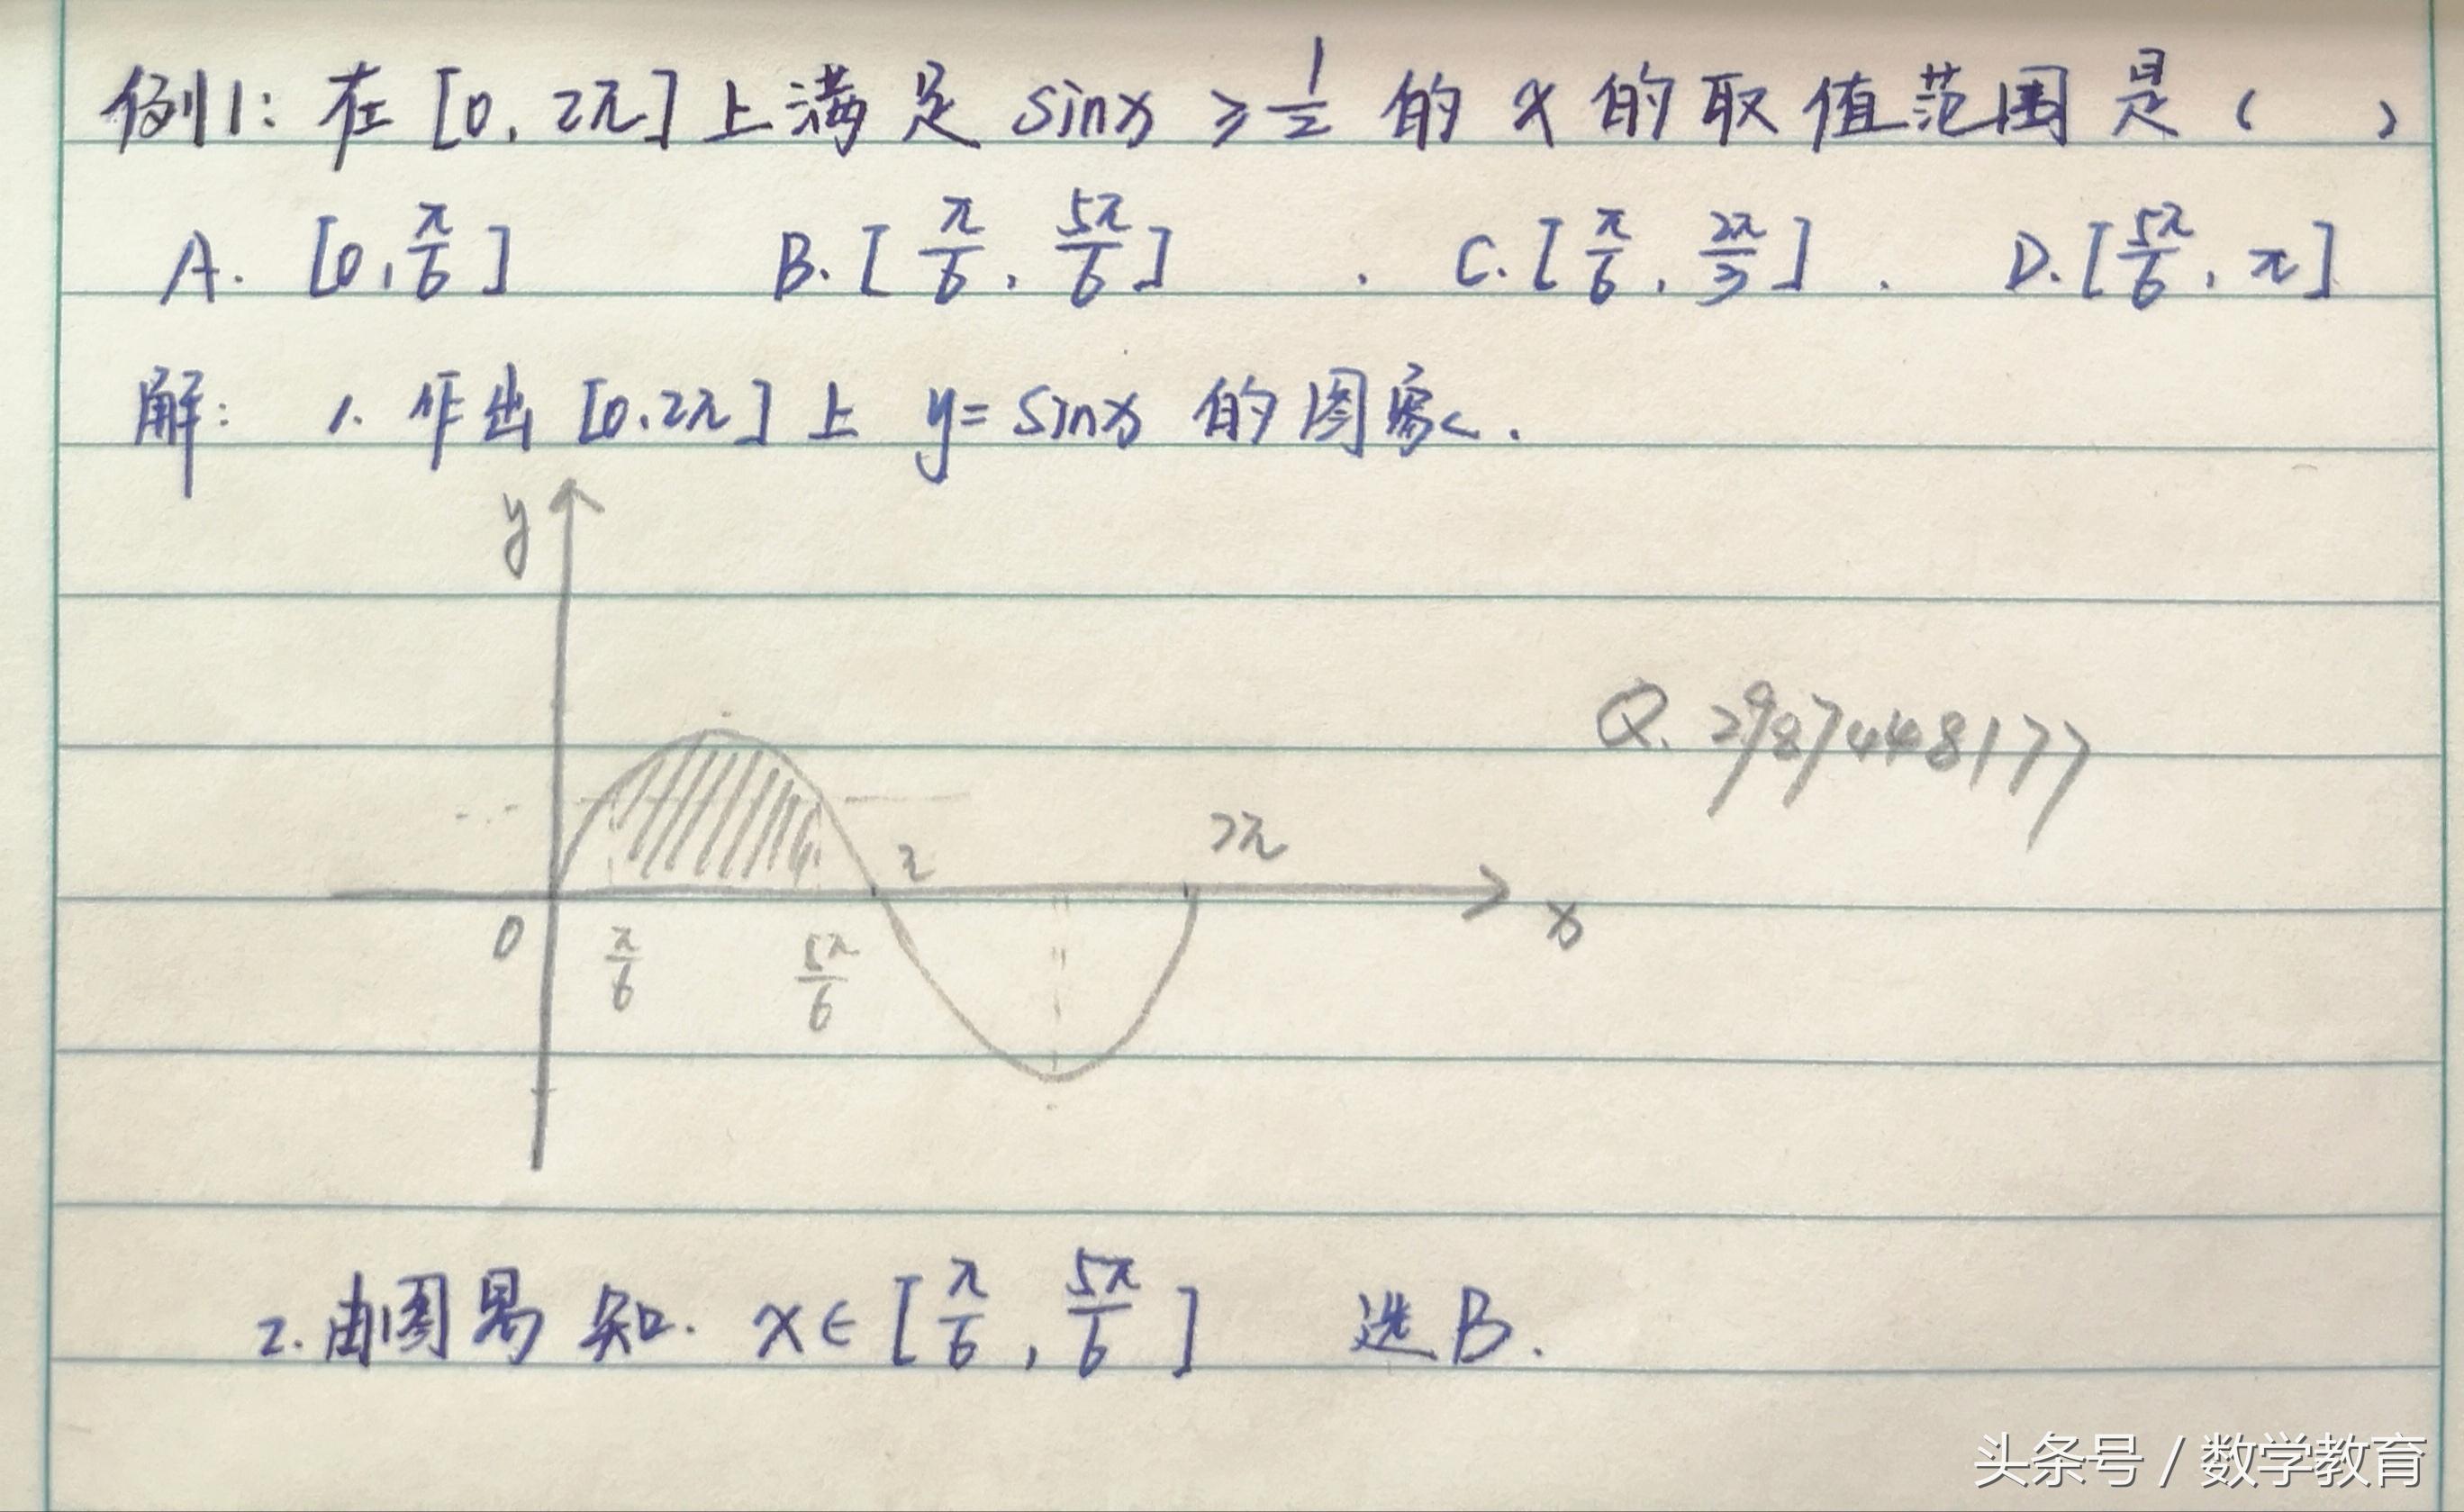 例1: 在 [0, 2π] 上满足 sinx ≥ 1/2 的 x 的取值范围是 ( )
A. [0, π/6] B. [π/6, 5π/6] C. [π/6, 2π/3] D. [5π/6, π]
解: 1. 作出 [0, 2π] 上 y = sinx 的图象.
y
Q. 2987448177
π 2π
0 π/6 5π/6 x
2. 由图易知. x∈[π/6, 5π/6] 选B.
头条号 / 数学教育